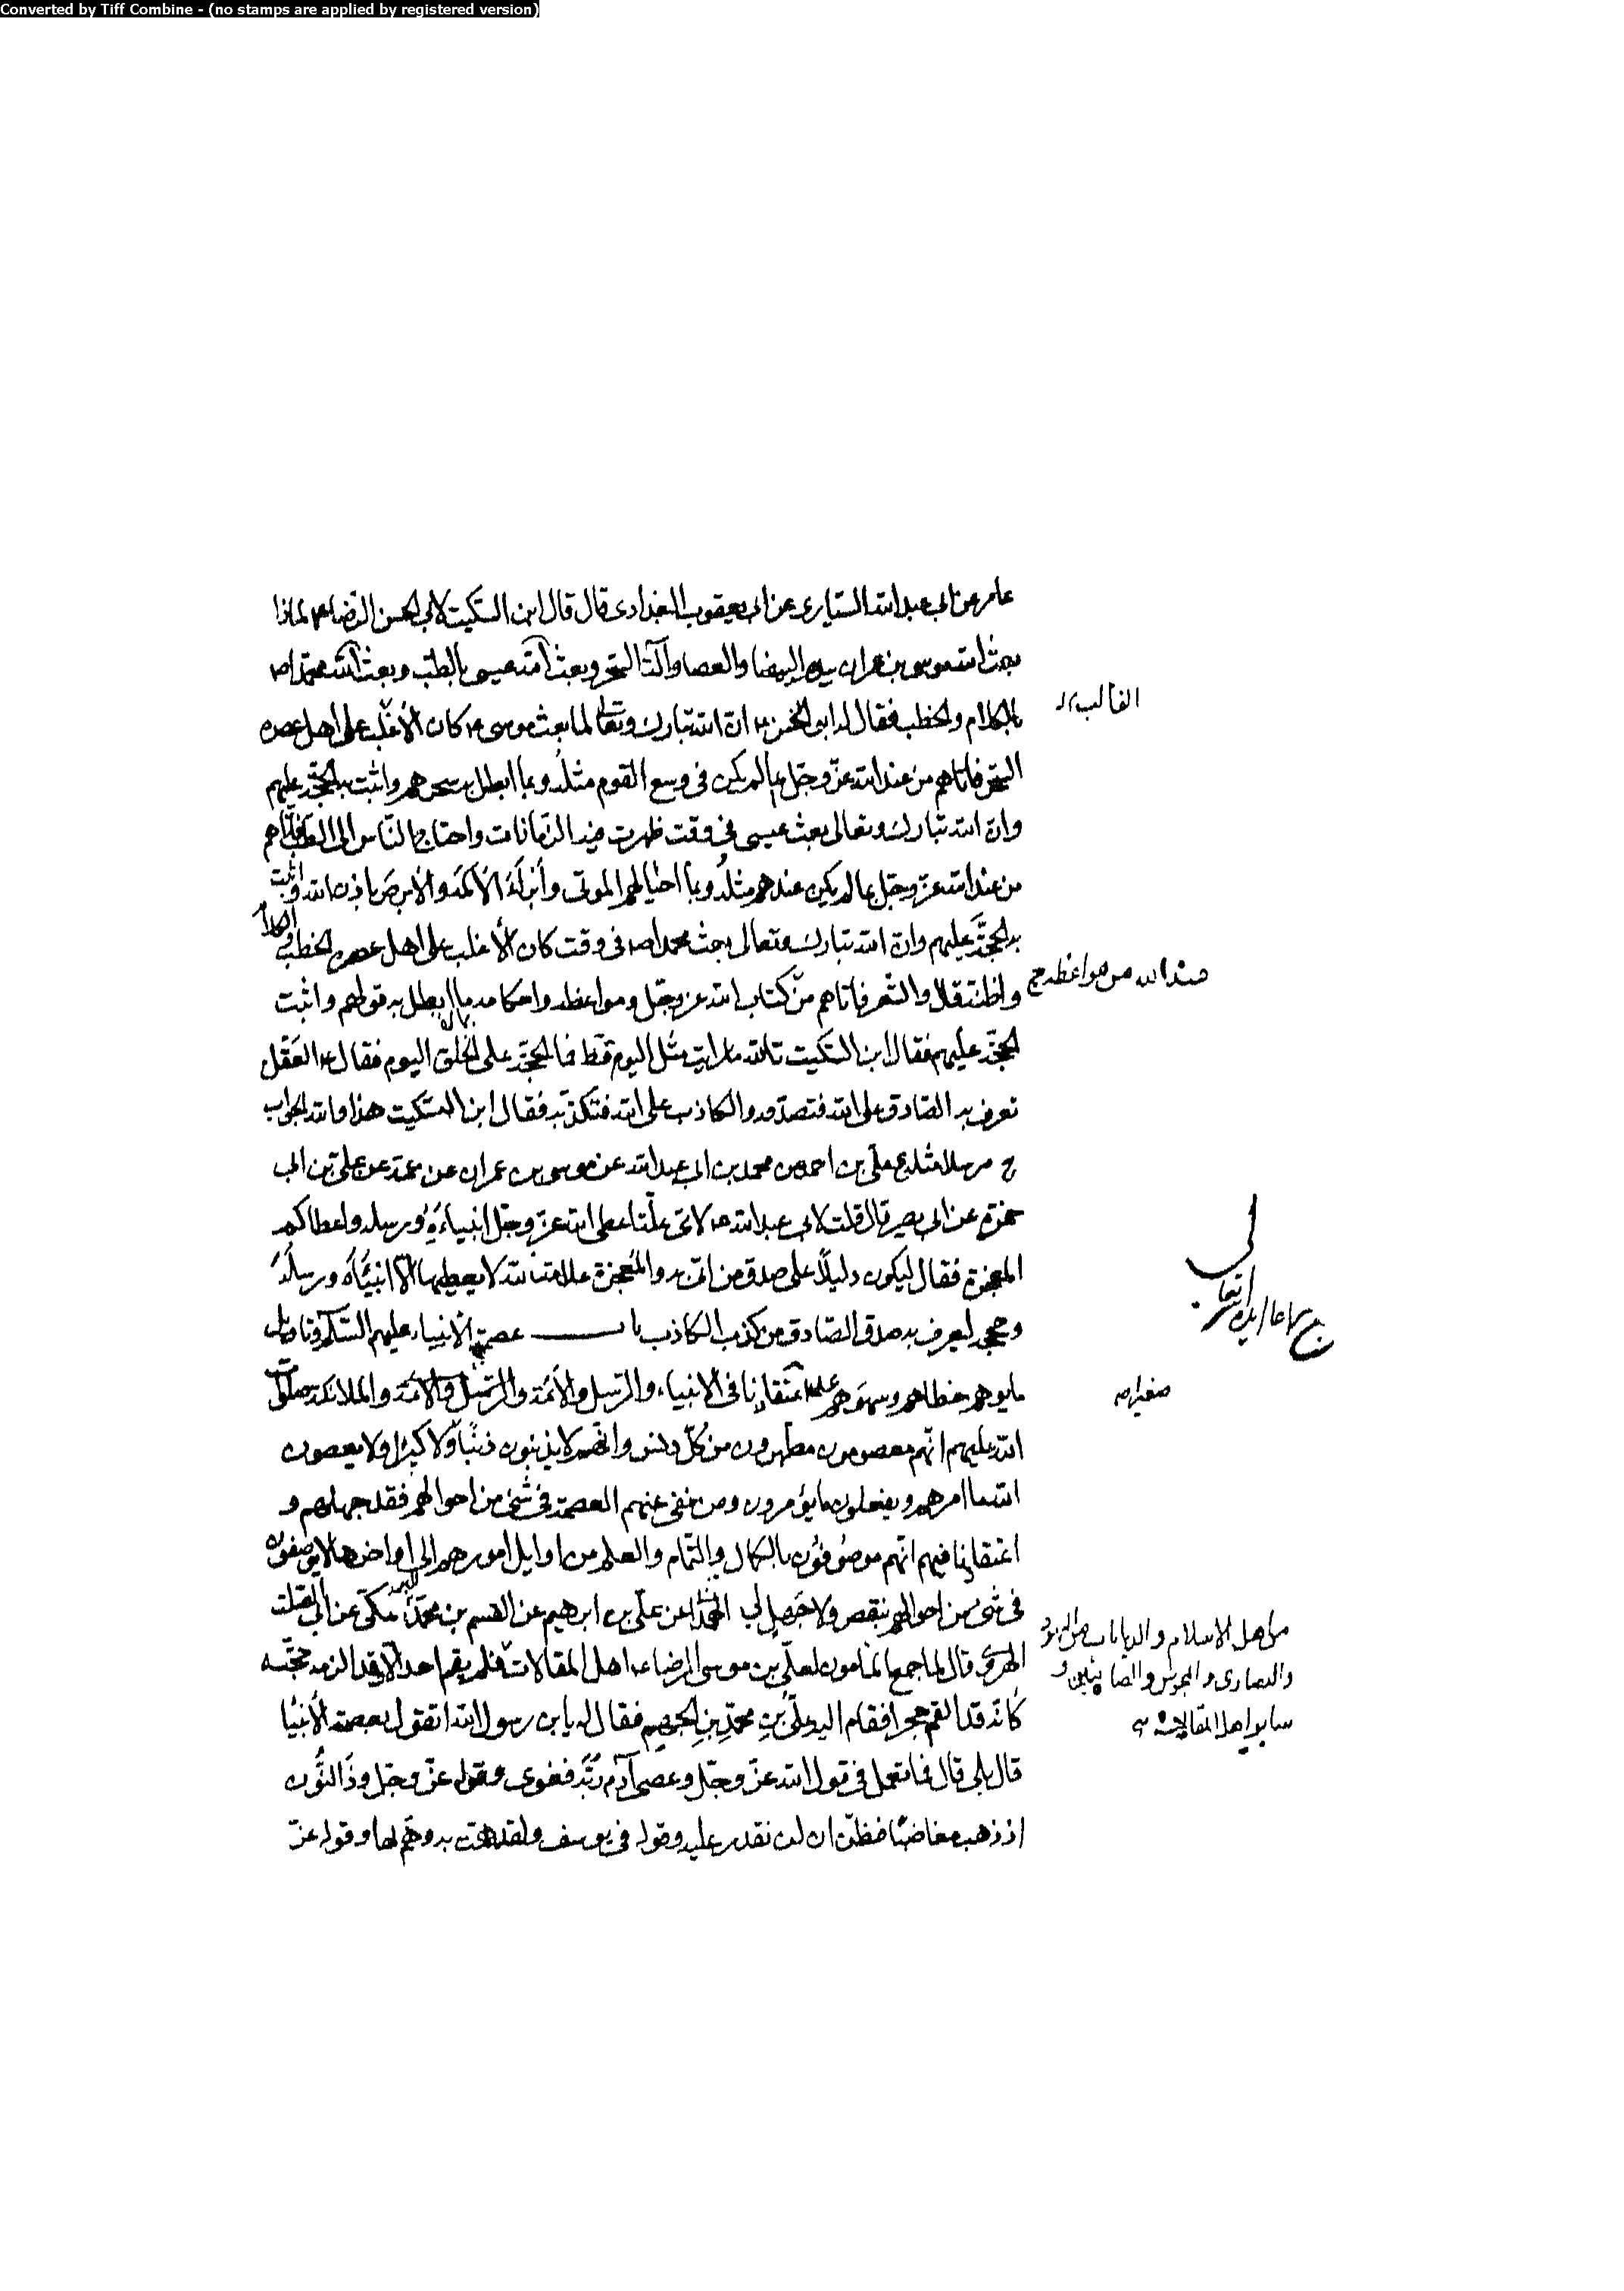 Converted by Tiff Combine - (no stamps are applied by registered version)
عامر عن ابي عبد الله السيّاري عن ابي يعقوب البغدادي قال قال ابن السكّيت لابي الحسن الرّضا ع لماذا
بعث الله موسى بن عمران بيده البيضا والعصا وآلة السّحر وبعث الله عيسى بالطّب وبعث الله محمّدا ص
بالكلام والخطب فقال له ابو الحسن ع انّ الله تبارك وتعالى لما بعث موسى ع كان الأغلب على اهل عصره
الغالب
السّحر فاتاهم من عند الله عزّ وجلّ بما لم يكن في وسع القوم مثلُه وبما ابطل به سحرهم واثبت به الحجّة عليهم
وان الله تبارك وتعالى بعث عيسى في وقت ظهرت فيه الزّمانات واحتاج النّاس الى الطب فاتاهم
من عند الله عزّ وجلّ بما لم يكن عندهم مثلُه وبما احيا لهم الموتى وأبرَأَ الأكمَه والأبرصَ باذن الله واثبت
به الحجّة عليهم وان الله تبارك وتعالى بعث محمدا ص في وقت كان الأغلب على اهل عصره الخطب والكلام
واظنّه قال والشعر فاتاهم من كتاب الله عز وجلّ ومواعظه واحكامه ما ابطل به قولهم واثبت
عند الله من مواعظه
الحجّة عليهم فقال ابن السّكيت تالله ما رايت مثل اليوم قطّ فما الحجّة على الخلق اليوم فقال ع العَقْل
تعرف به الصّادق على الله فتصدّقه والكاذب على الله فتكذّبه فقال ابن السّكيت هذا والله الجواب
ج مرسلا مثله ع علّي بن احمد عن محمد بن ابي عبد الله عن موسى بن عمران عن عمّه عن علّي بن ابي
حمزة عن ابي بصير قال قلت لابي عبد الله ع لايّ علّة اعطى الله عزّ وجلّ انبياءَهُ ورسله واعطاكم
المعجزة فقال ليكون دليلاً على صدق من اتى به والمُعجزة علامة لله لا يعطيها الّا انبيَاءَهُ ورسلَهُ
وحججه ليعرف به صدق الصّادق من كذب الكاذب باب عصمة الأنبياء عليهم السّلام وتاويل
ما يوهم خطاهم وسهوهم عد اعتقادنا في الانبياء والرّسل والأئمّة والملائكة صلوات
الله عليهم انّهم معصومون مطهرون من كلّ دنس وانّهم لا يذنبون ذنبًا ولا كبيرا ولا يعصون
صغيرا ص
الله ما امرهم ويفعلون ما يؤمرون ومن نفى عنهم العصمة في شئ من احوالهم فقد جهلهم و
اعتقادنا فيهم انّهم موصُوفوُن بالكمال والتّمام والعلم من اوايل امورهم الى اواخرها لا يوصفون
في شئ من احوالهم بنقص ولا جَهل لي الهمداني عن علّي بن ابرهيم عن القسم بن محمّد البرمكي عن ابي الصّلت
الهروي قال لما جمع المامون لعلّي بن موسى الرضا ع اهل المقالات فلم يقم احد الّا وقد الزمه حجّته
من اهل الاسلام والديانات من اليهود
والنصارى والمجوس والصابئين و
ساير اهل المقالات
كانّه قد القم حجرا فقام اليه علّي بن محمّد بن الجهم فقال له يا بن رسول الله اتقول بعصمة الأنبيا
قال بلى قال فما تعمل في قول الله عزّ وجلّ وعصى آدم ربّه فغوى وقوله عزّ وجلّ وذَا النُّون
اذ ذهب مغاضبًا فظنّ ان لن نقدر عليه وقوله في يوسف ولقد همّت به وهمّ بها وقوله عزّ